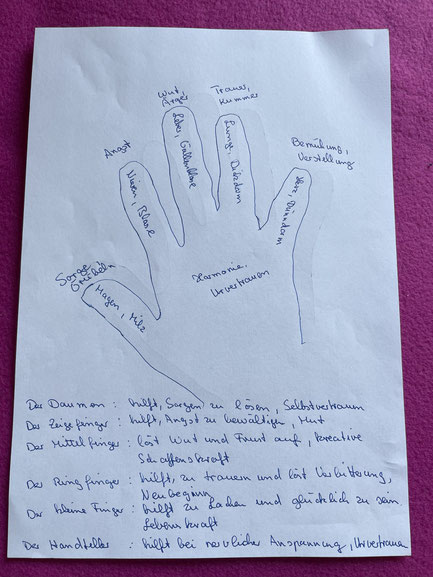 Wut,
Ärger
Trauer,
Kummer
Angst
Bemühung,
Verstellung
Leber, Gallenblase
Lunge, Dickdarm
Nieren, Blase
Herz, Dünndarm
Sorge
Grübeln
Magen, Milz
Harmonie,
Urvertrauen
Der Daumen : hilft, Sorgen zu lösen, Selbstvertrauen
Der Zeigefinger : hilft, Angst zu bewältigen, Mut
Der Mittelfinger : löst Wut und Frust auf, kreative
Schaffenskraft
Der Ringfinger : hilft, zu trauern und löst Verbitterung,
Neubeginn
Der kleine Finger : hilft zu Lachen und glücklich zu sein
Lebenskraft
Der Handteller : hilft bei nervlicher Anspannung, Urvertrauen